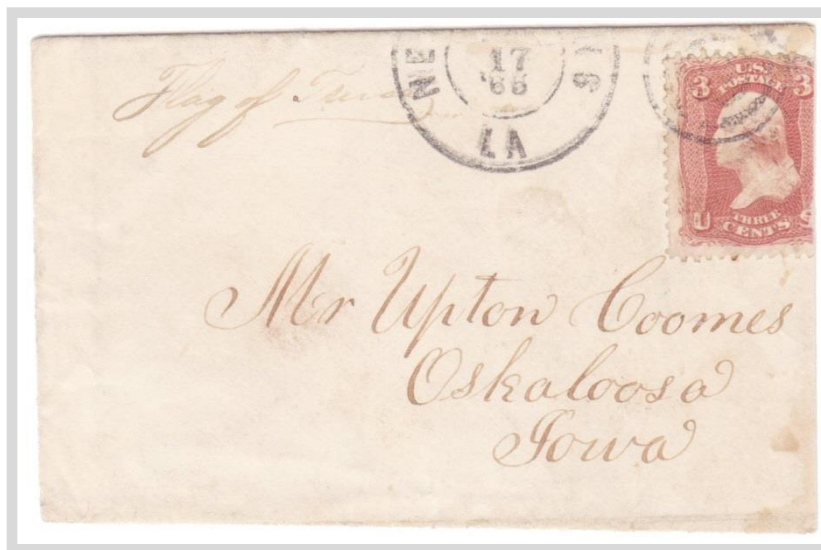 Flag of
NE S
17
'66
LA
3 U.S. 3
POSTAGE
U THREE S
CENTS
Mr Upton Coomes
Oskaloosa
Iowa